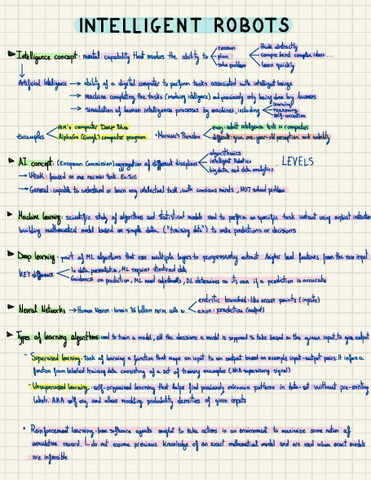 INTELLIGENT ROBOTS
Intelligence concept: mental capability that involves the ability to
reason
plan
solve problem
think abstractly
comprehend complex ideas...
learn quickly
Artificial Intelligence → ability of a digital computer to perform tasks associated with intelligent beings
→ Machine completing the tasks (involving intelligence) and previously only being done by humans
→ simulation of human intelligence processes by machines, including
learning
reasoning
self-correction
examples
IBM's computer Deep Blue
AlphaGo (Google) computer program
• Moravec's Paradox
easy: adult intelligence tests in computers
difficult: give one-year-old perception and mobility
AI concept: (European Commission) aggregation of different disciplines
algorithmics
intelligent Robotics
big data, and data analytics
LEVELS
→ Weak: focused on one narrow task. Exists
→ General: capable to understand or learn any intellectual task, with conscious minds, NOT solved problem
Machine learning: scientific study of algorithms and statistical models used to perform an specific task without using explicit
building mathematical model based on sample data ("training data") to make predictions or decisions
Deep learning: part of ML algorithms that uses multiple layers to progressively extract higher level features from the raw input
KEY difference
In data presentation, ML requires structured data
Guidance on prediction, ML need adjustments, DL determines on its own if a prediction is accurate
Neural Networks → Human Neuron: brain 86 billion neurons, with a
dendrite: branches like access points (inputs)
axon: prediction (output)
Types of learning algorithms: used to train a model, all the decisions a model is supposed to take based on the given input, to give output
- Supervised learning: task of learning a function that maps an input to an output based on example input-output pairs. It infers a
function from labeled training data consisting of a set of training examples (AKA supervisory signal)
- Unsupervised learning: self-organized learning that helps find previously unknown patterns in data-set without pre-existing
labels. AKA self org and allows modeling probability densities of given inputs
• Reinforcement learning: how software agents ought to take actions in an environment to maximize some notion of
cumulative reward. do not assume previous knowledge of an exact mathematical model and are used when exact models
are infeasible